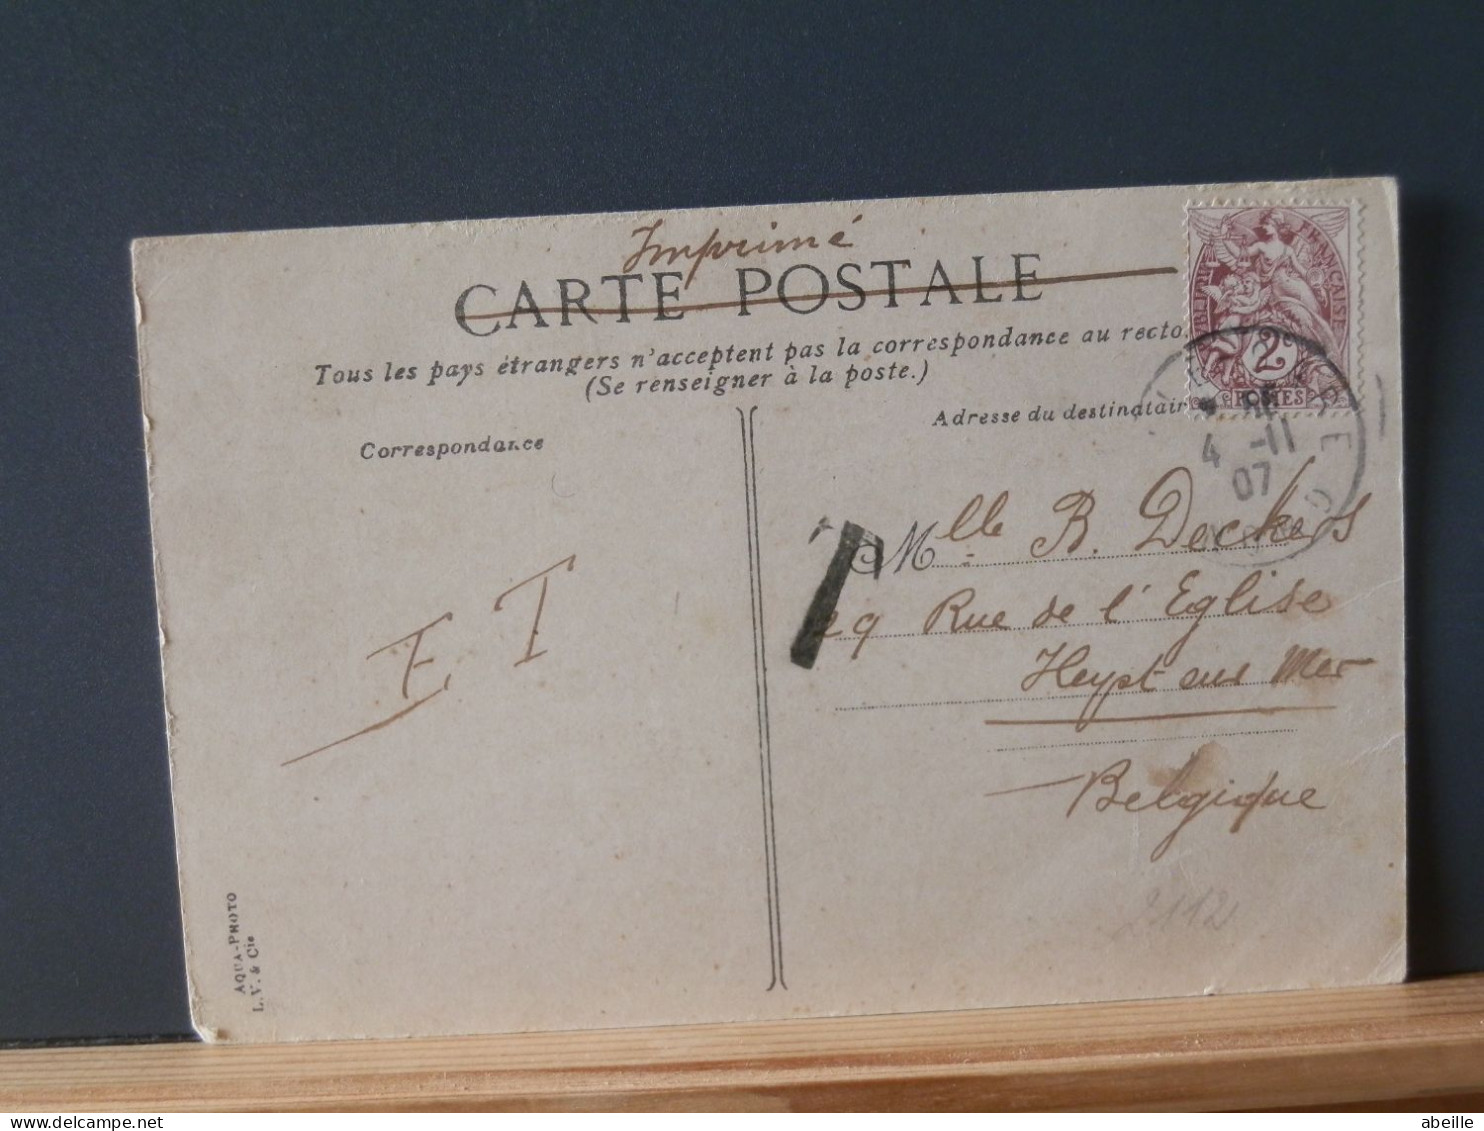 Imprimé
CARTE POSTALE
Tous les pays étrangers n'acceptent pas la correspondance au recto.
(Se renseigner à la poste.)
Correspondance
Adresse du destinatair
FRANÇAISE
2
POSTES
4 -11
07
T
Mlle B. Deckers
29 Rue de l'Eglise
Heyst sur Mer
Belgique
E T
2112
AQUA-PHOTO
L. V. & Cie
abeille